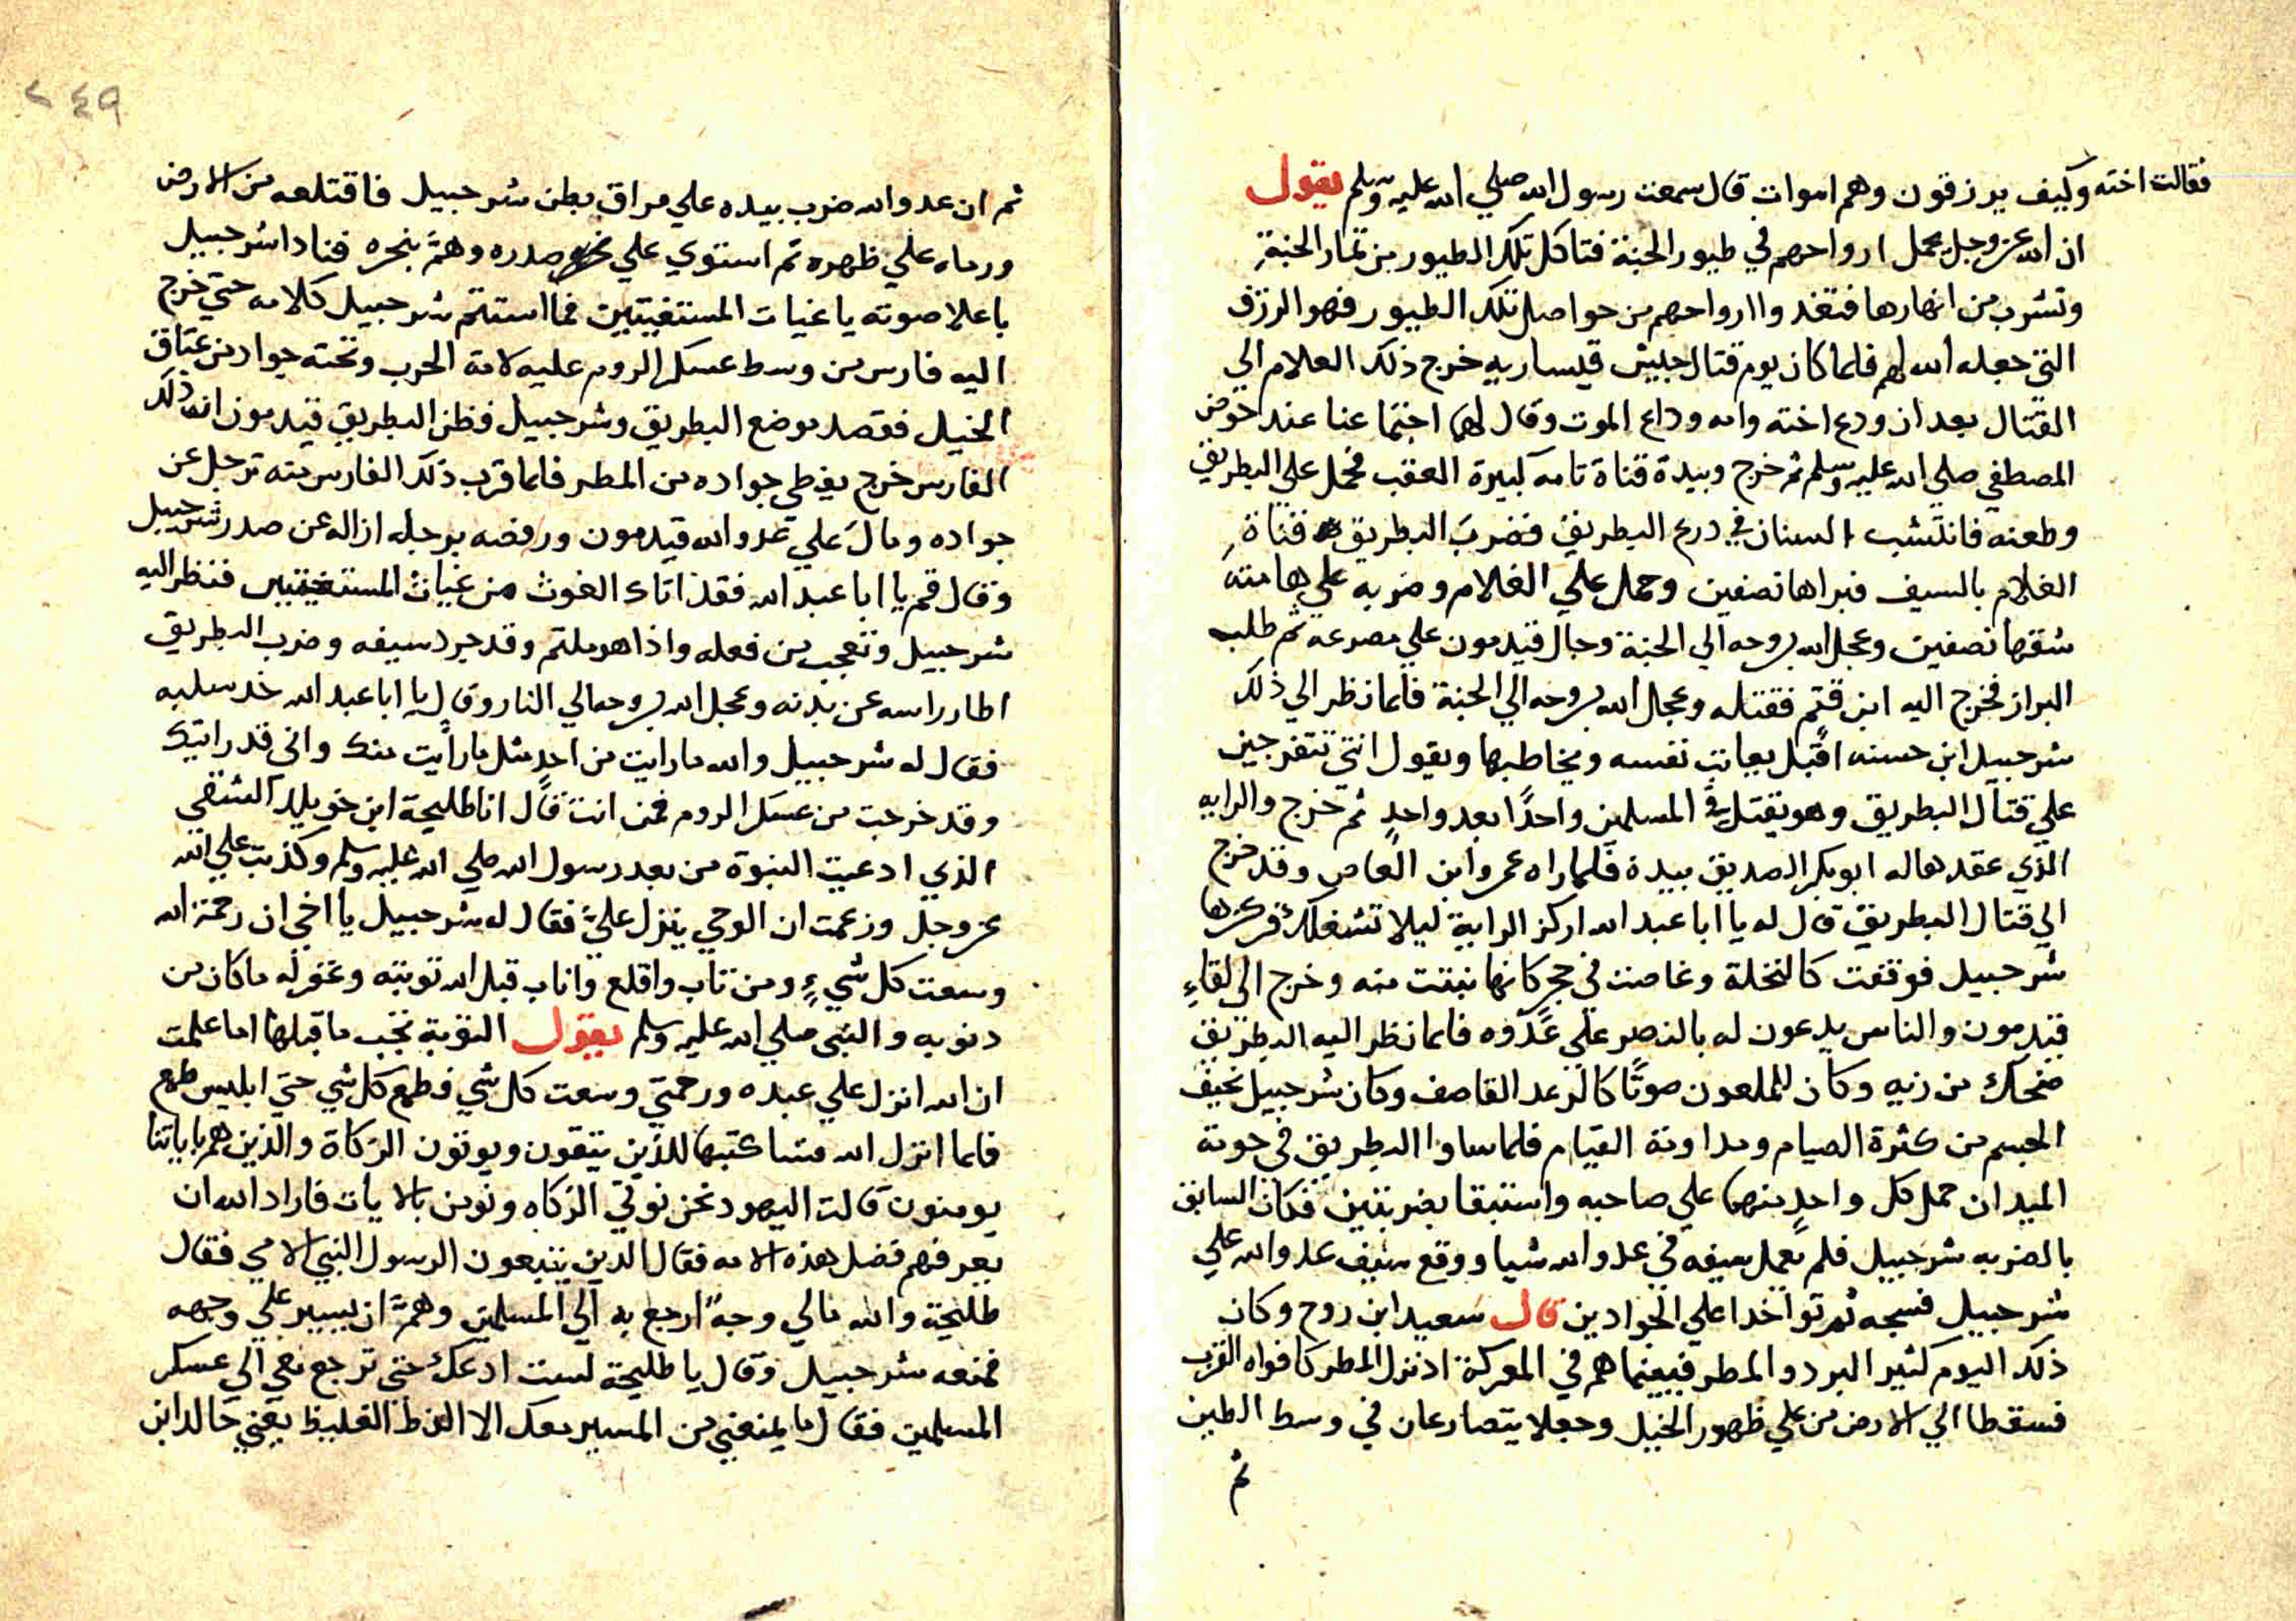 فقالت اخته وكيف يرزقون وهم اموات قال سمعت رسول الله صلي الله عليه وسلم يقول
ان الله عز وجل يجعل ارواحهم في طيور الجنة فتاكل تلك الطيور من ثمار الجنة
وتشرب من انهارها فتغدوا ارواحهم من حواصل تلك الطيور فهو الرزق
التي جعله الله لهم فلما كان يوم قتال جيش قيساريه خرج ذلك الغلام الي
القتال بعد ان ودع اخته وامه وداع الموت وقال لهما اجتماعنا عند حوض
المصطفي صلي الله عليه وسلم ثم خرج وبيدة قناة تامه كبيرة العقب فحمل علي البطريق
وطعنه فانتشب السنان في درع البطريق فضرب البطريق قناة
الغلام بالسيف فبراها نصفين وحمل علي الغلام وضربه علي هامته
شقها نصفين وعجل الله بروحه الي الجنة وجال قيدمون علي مصرعه ثم طلب
البراز فخرج اليه ابن قثم فقتله وعجال الله بروحه الي الجنة فلما نظر الي ذلك
شرحبيل ابن حسنه اقبل يعاتب نفسه ويخاطبها ويقول انتي تتفرجين
علي قتال البطريق وهو يقتل في المسلمين واحدًا بعد واحدٍ ثم خرج والرايه
الذي عقدها له ابو بكر الصديق بيدة فلما راه عمرو ابن العاص وقد خرج
الي قتال البطريق قال له يا ابا عبد الله اركز الراية ليلا تشغلك فركزها
شرحبيل فوقفت كالنخلة وغاصت في حجر كانها نبتت منه وخرج الي لقاءِ
قيدمون والناس يدعون له بالنصر علي عدوه فلما نظر اليه البطريق
ضحك من زيه وكان للملعون صوتًا كالرعد القاصف وكان شرحبيل نحيف
الجسم من كثرة الصيام ومداومة القيام فلما ساوا البطريق في حومة
الميدان حمل كل واحدٍ منهما علي صاحبه واستبقا بضربتين فكان السابق
بالضربه شرحبيل فلم يعمل سيفه في عدو الله شيا ووقع سيف عدو الله علي
شرحبيل فسجه ثم تواخدا علي الجوادين قال سعيد ابن روح وكان
ذلك اليوم كثير البرد والمطر فبينما هم في المعركة اذ نزل المطر كافواه القرب
فسقطا الي الارض من علي ظهور الخيل وجعلا يتصارعان في وسط الطين
ثم
٢٤٩
ثم ان عدو الله ضرب بيده علي مراق بطن شرحبيل فاقتلعه من الارض
ورماه علي ظهره ثم استوي علي صدره وهمَّ بنحره فنادا شرحبيل
باعلا صوته يا غياث المستغيثين فما استتم شرحبيل كلامه حتي خرج
اليه فارس من وسط عسكر الروم عليه لامة الحرب وتحته جواد من عتاق
الخيل فقصد موضع البطريق وشرحبيل فظن البطريق قيدمون ان ذلك
الفارس خرج يعطي جواده من المطر فلما قرب ذلك الفارس منه ترجل عن
جواده ومال علي عدو الله قيدمون ورفضه برجله ازاله عن صدر شرحبيل
وقال قم يا ابا عبد الله فقد اتاك الغوث من غياث المستغيثين فنظر اليه
شرحبيل وتعجب من فعله واذا هو ملتم وقد جرد سيفه وضرب البطريق
اطار راسه عن بدنه وعجل الله بروحه الي النار وقال يا ابا عبد الله خد سلبه
فقال له شرحبيل والله ما رايت من احدٍ مثل ما رأيت منك واني قد رايتك
وقد خرجت من عسكر الروم فمن انت قال انا طليحة ابن خويلد الشقي
الذي ادعيت النبوة من بعد رسول الله صلي الله عليه وسلم وكذبت علي الله
عز وجل وزعمت ان الوحي ينزل عليَّ فقال له شرحبيل يا اخي ان رحمة الله
وسعت كل شيءٍ ومن تاب واقلع واناب قبل الله توبته وغفر له ما كان من
دنوبه والنبي صلي الله عليه وسلم يقول التوبة تجب ما قبلها اما علمت
ان الله انزل علي عبده ورحمتي وسعت كل شي فطمع كل شي حتي ابليس طمع
فلما انزل الله فسا كتبها للذين يتقون ويوتون الزكاة والذين هم باياتنا
يومنون قالت اليهود نحن نوتي الزكاه ونومن بالايات فاراد الله ان
يعرفهم فضل هذه الامه فقال الذين يتبعون الرسول النبي الامي فقال
طليحة والله مالي وجهًا ارجع به الي المسلمين وهمَّ ان يسير علي وجهه
فمنعه شرحبيل وقال يا طليحة لست ادعك حتي ترجع معي الي عسكر
المسلمين فقال ما يمنعني من المسير معك الا الفظ الغليظ يعني خالد ابن